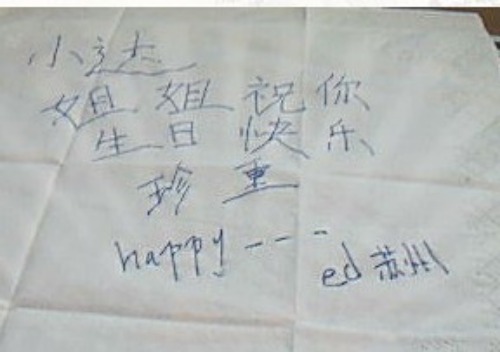 小志
姐姐祝你
生日快乐
珍重
happy! - - -
ed 苏州